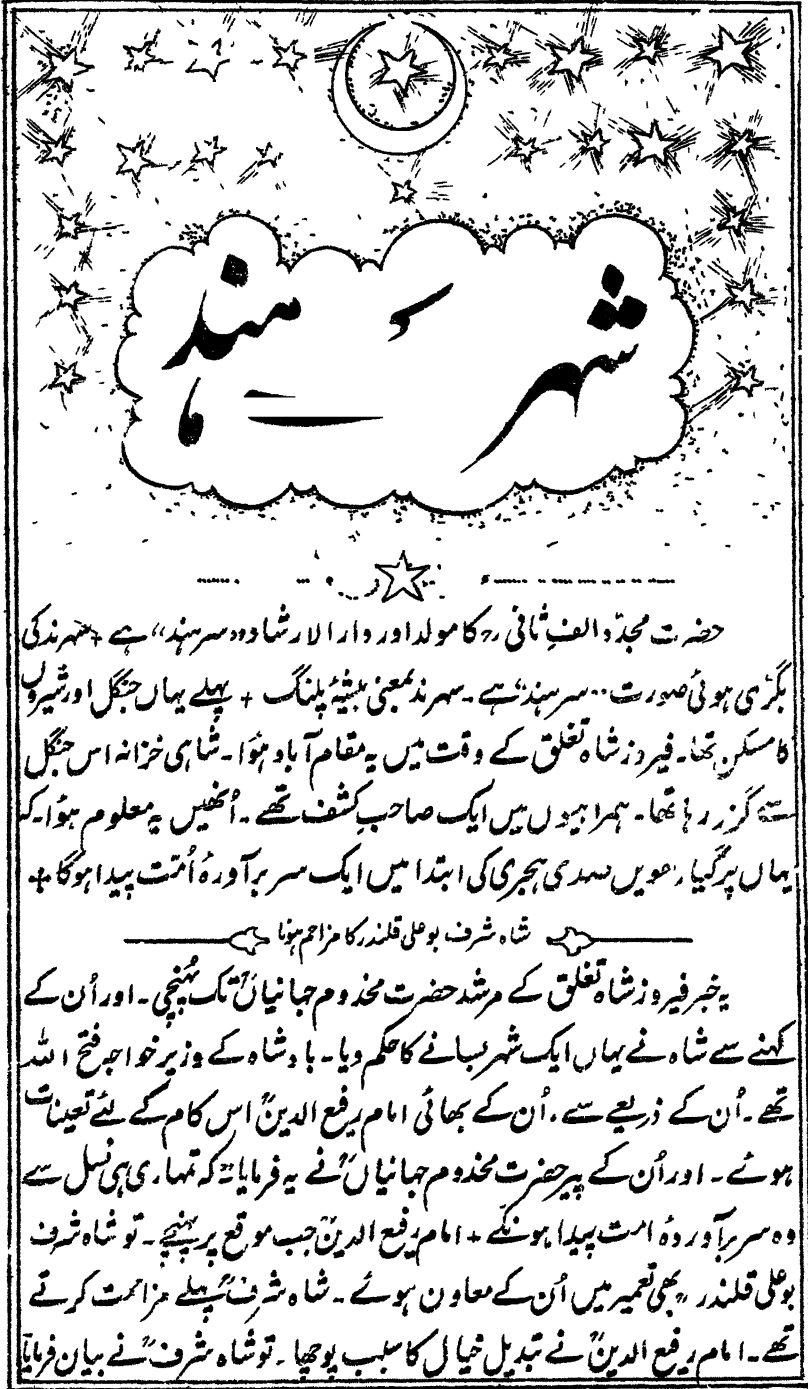 شہرِ سرہند
حضرت مجدّد الفِ ثانی رح کا مولد اور دارالارشاد "سرہند" ہے + سہرند کی
بگڑی ہوئی صورت "سرہند" ہے۔ سہرند بمعنی بیشۂ پلنگ + پہلے یہاں جنگل اور شیروں
کا مسکن تھا۔ فیروز شاہ تغلق کے وقت میں یہ مقام آباد ہؤا۔ شاہی خزانہ اس جنگل
سے گزر رہا تھا۔ ہمراہیوں میں ایک صاحبِ کشف تھے۔ اُنھیں یہ معلوم ہؤا۔ کہ
یہاں پر گیارھویں صدی ہجری کی ابتدا میں ایک سر برآوردۂ اُمّت پیدا ہوگا +
شاہ شرف بوعلی قلندر کا مزاحم ہونا
یہ خبر فیروز شاہ تغلق کے مرشد حضرت مخدوم جہانیاںؒ تک پہُنچی۔ اور اُن کے
کہنے سے شاہ نے یہاں ایک شہر بسانے کا حکم دیا۔ بادشاہ کے وزیر خواجہ فتح اللہ
تھے۔ اُن کے ذریعے سے، اُن کے بھائی امام رفیع الدینؒ اس کام کے لئے تعینات
ہوئے۔ اور اُن کے پیر حضرت مخدوم جہانیاںؒ نے یہ فرمایا: کہ تمہاری ہی نسل سے
وہ سر برآوردۂ امت پیدا ہونگے + امام رفیع الدینؒ جب موقع پر پہنچے۔ تو شاہ شرف
بوعلی قلندر رح بھی تعمیر میں اُن کے معاون ہوئے۔ شاہ شرفؒ پہلے مزاحمت کرتے
تھے۔ امام رفیع الدینؒ نے تبدیل خیال کا سبب پوچھا۔ تو شاہ شرفؒ نے بیان فرمایا